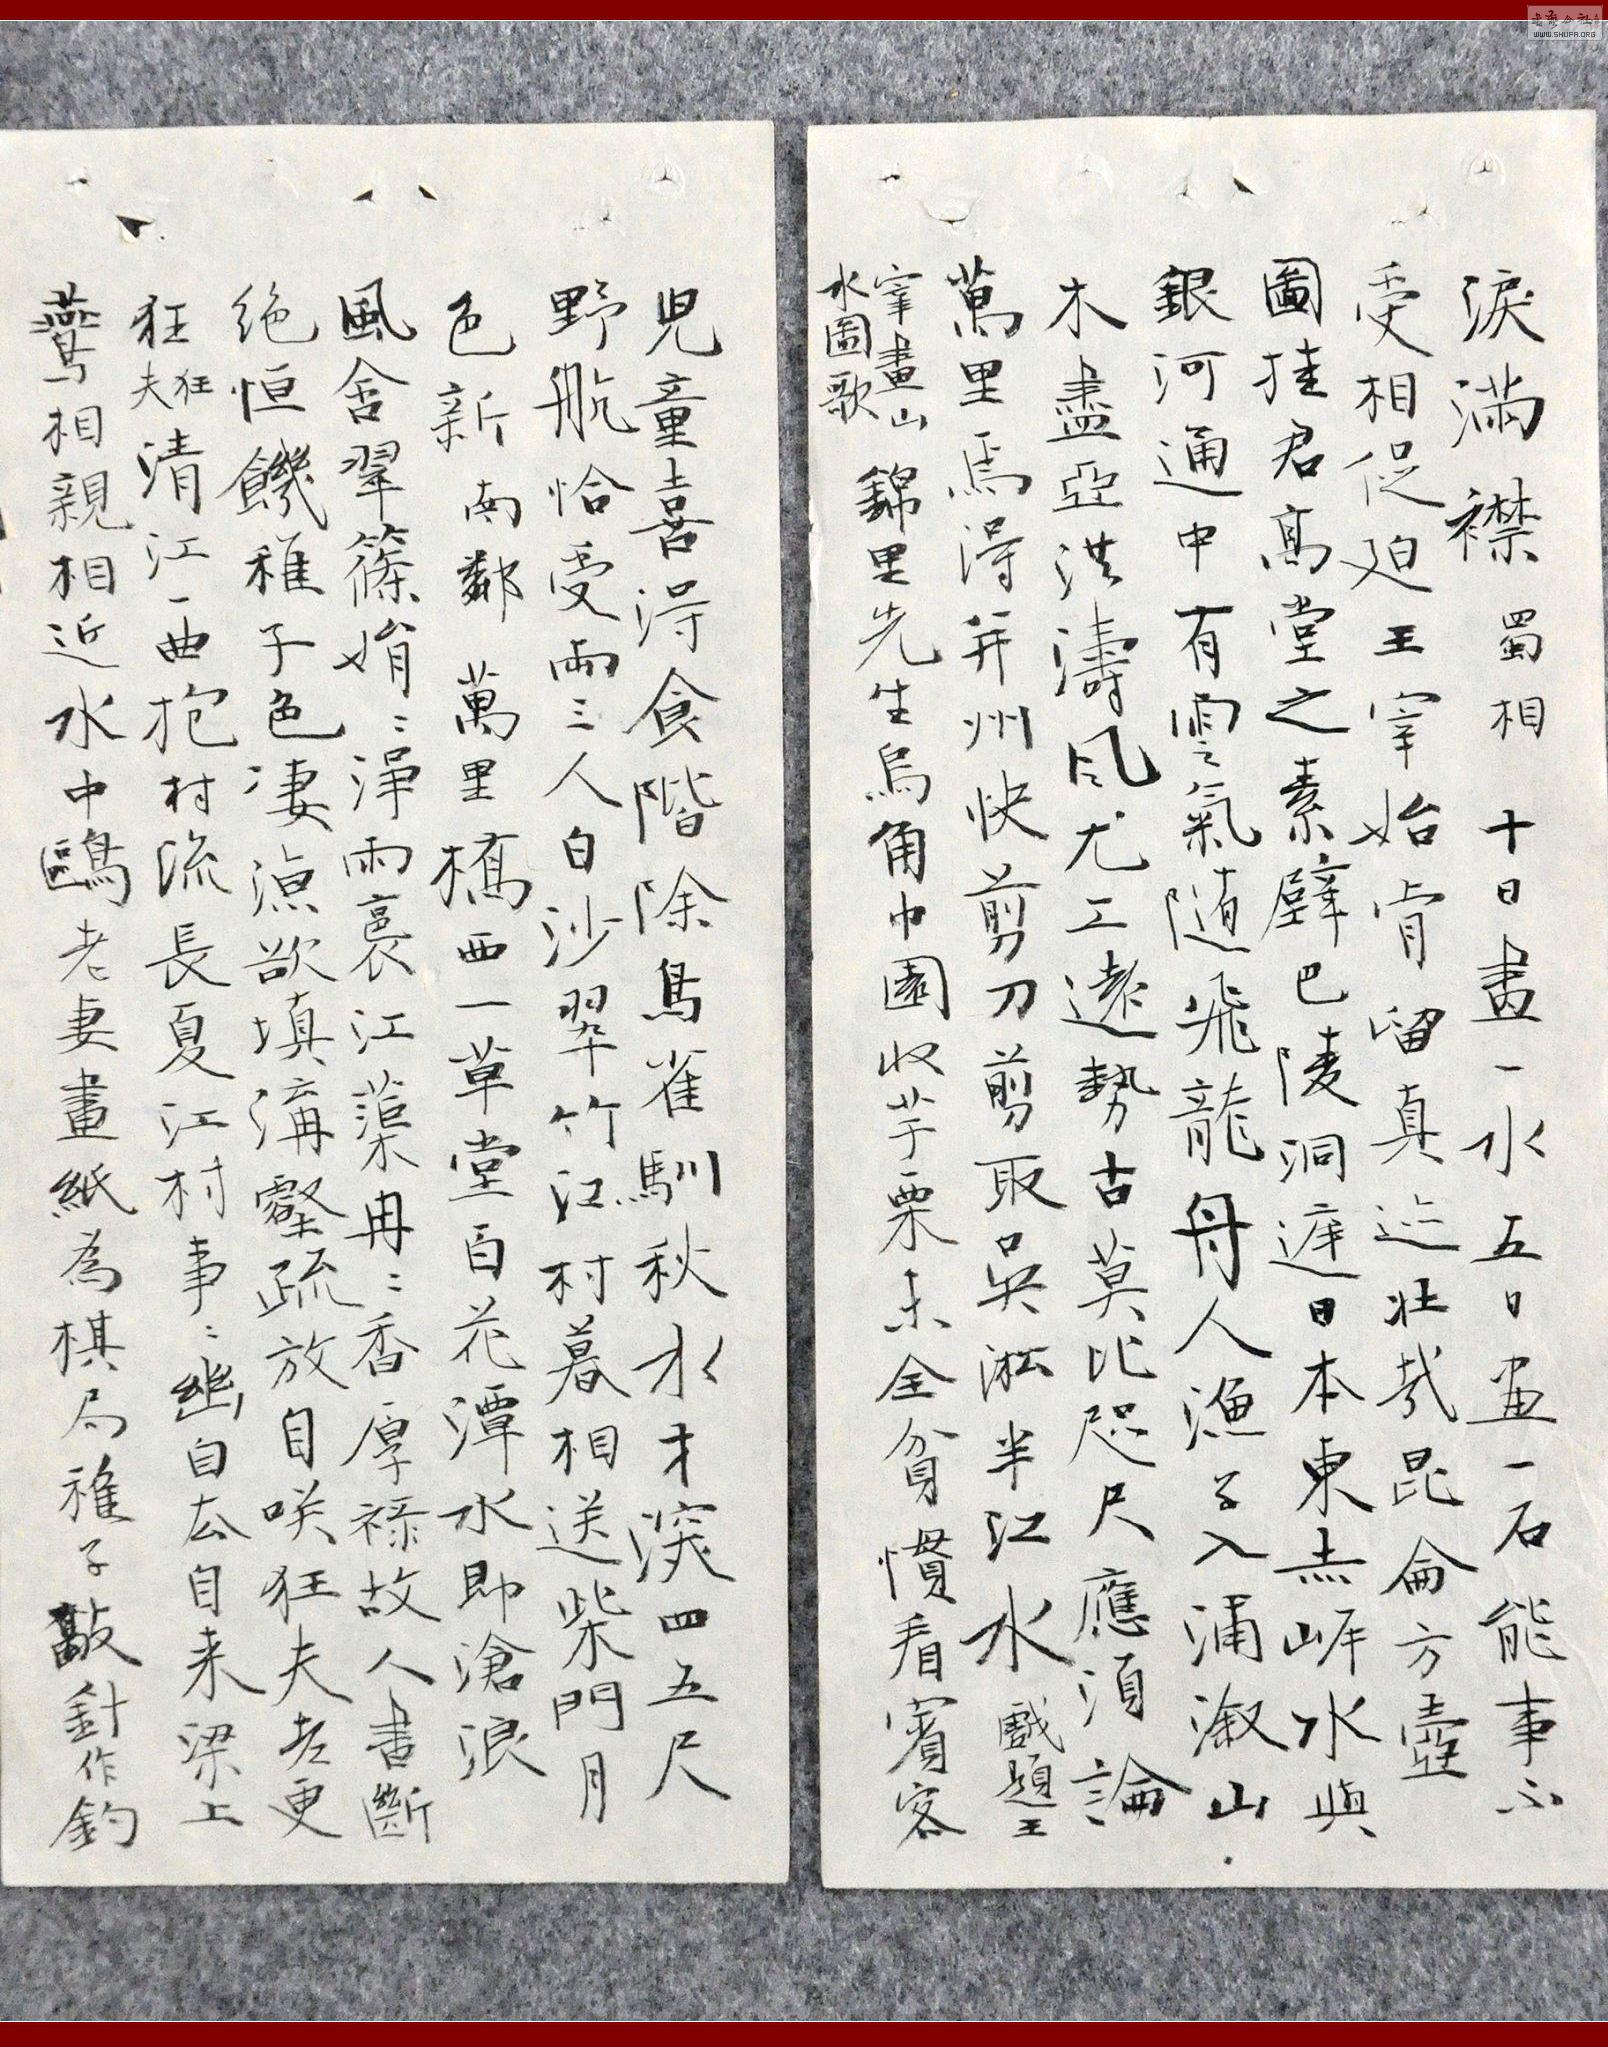 淚滿襟 蜀相 十日畫一水五日畫一石能事不
受相促迫王宰始肯留真迹壯哉昆侖方壺
圖挂君高堂之素壁巴陵洞庭日本東赤岸水與
銀河通中有雲氣隨飛龍舟人漁子入浦溆山
木盡亞洪濤風尤工遠勢古莫比咫尺應須論
萬里焉得并州快剪刀剪取吳淞半江水 戲題王
宰畫山
水圖歌
錦里先生烏角巾園收芋栗未全貧慣看賓客
兒童喜得食階除鳥雀馴秋水才深四五尺
野航恰受兩三人白沙翠竹江村暮相送柴門月
色新 南鄰 萬里橋西一草堂百花潭水即滄浪
風含翠篠娟〻淨雨裛江蕖冉〻香厚祿故人書斷
絕恒饑稚子色凄涼欲填溝壑疏放自咲狂夫老更
狂 狂夫 清江一曲抱村流長夏江村事〻幽自去自来梁上
鷰相親相近水中鷗老妻畫紙為棋局稚子敲針作釣
書法公社
WWW.SHUFA.ORG